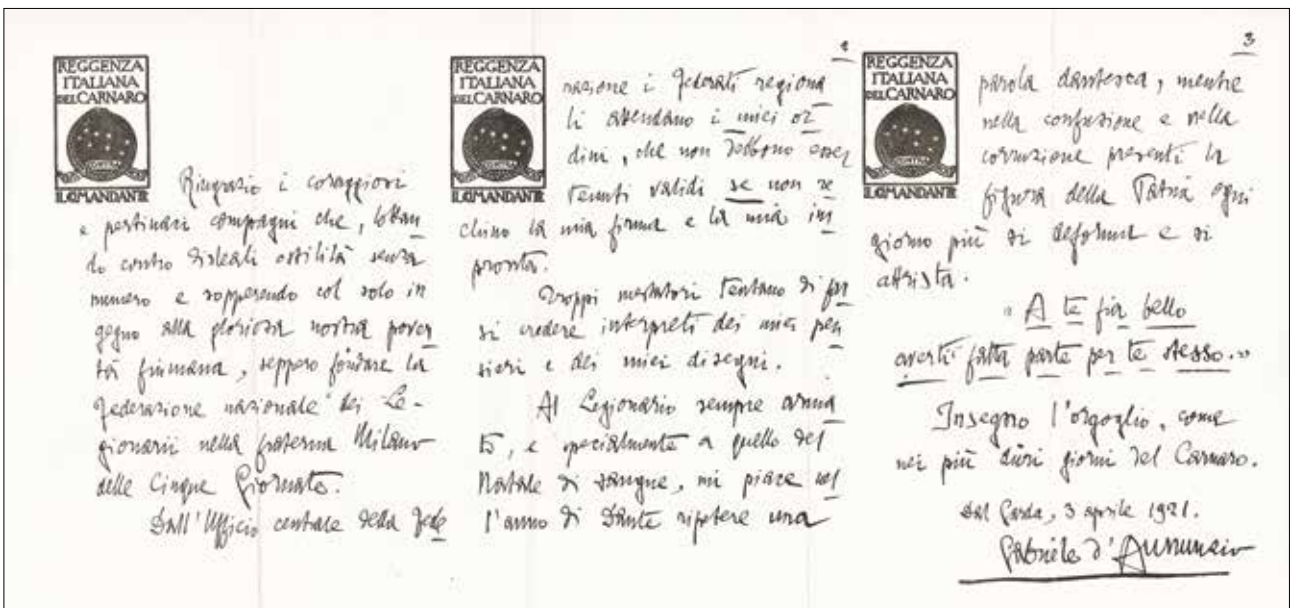 REGGENZA
ITALIANA
DEL CARNARO
IL COMANDANTE
Ringrazio i coraggiosi
e pertinaci compagni che, lottan
do contro sleali ostilità senza
numero e sopperendo col solo in
gegno alla gloriosa nostra pover
tà fiumana, seppero fondare la
Federazione nazionale dei Le-
gionarii nella fraterna Milano
delle Cinque Giornate.
Dall'Ufficio centrale della Fede
2
REGGENZA
ITALIANA
DEL CARNARO
IL COMANDANTE
razione i Federati regiona
li attendano i miei or
dini, che non debbono esser
tenuti validi se non re
chino la mia firma e la mia im
pronta.
Troppi mestatori tentano di far
si credere interpreti dei miei pen
sieri e dei miei disegni.
Al Legionario sempre arma
to, e specialmente a quello del
Natale di sangue, mi piace nel
l'anno di Dante ripetere una
3
REGGENZA
ITALIANA
DEL CARNARO
IL COMANDANTE
parola dantesca, mentre
nella confusione e nella
corruzione presenti la
figura della Patria ogni
giorno più si deforma e si
attrista.
"A te fia bello
averti fatta parte per te stesso."
Insegno l'orgoglio, come
nei più duri giorni del Carnaro.
Dal Garda, 3 aprile 1921.
Gabriele d'Annunzio